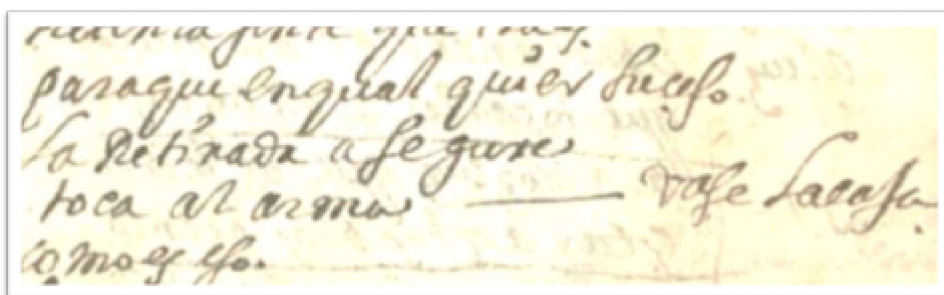 gente que tray.
paraque enqual quier suceso
la Retirada asegure
toca al arma — vase Lacasa
como es eso.